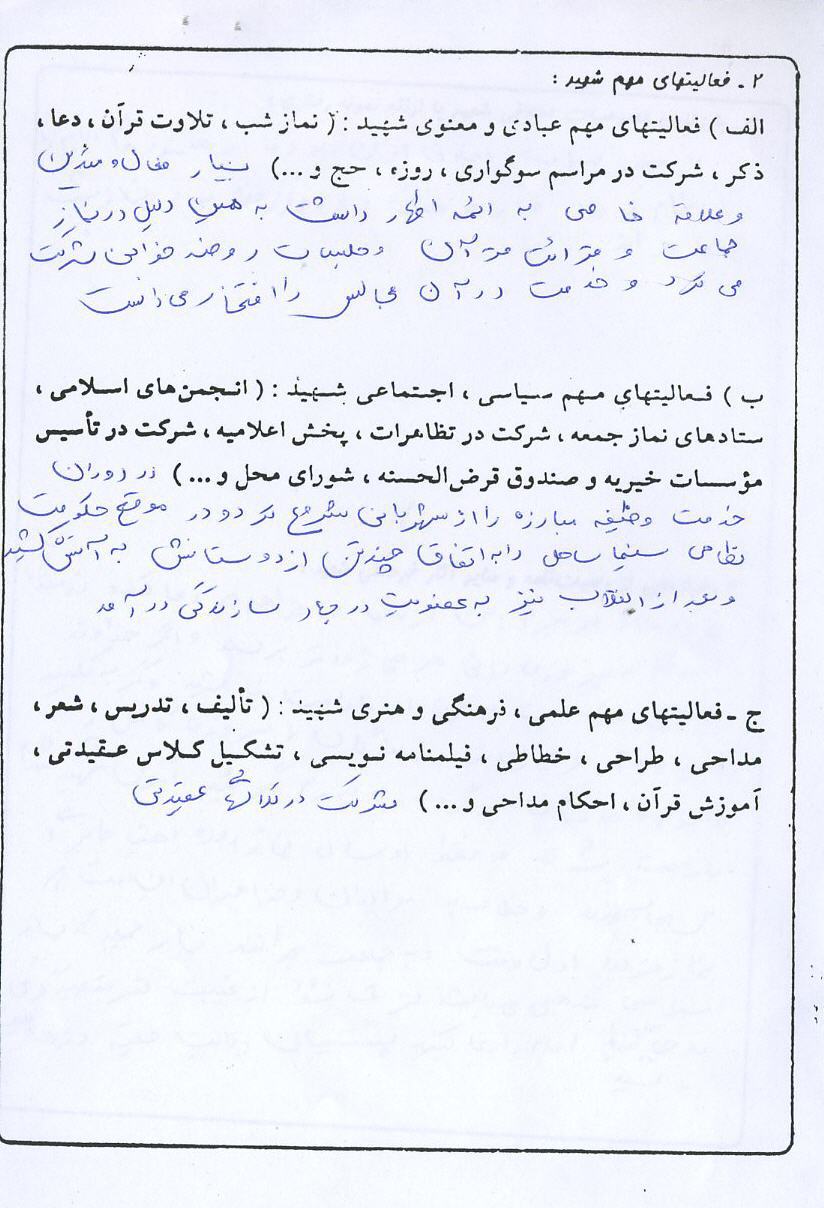 ۲ ـ فعالیتهای مهم شهید :
الف ) فعالیتهای مهم عبادی و معنوی شهید : ( نماز شب ، تلاوت قرآن ، دعا ،
ذکر ، شرکت در مراسم سوگواری ، روزه ، حج و ...) بسیار فعال و متدین
و علاقه خاصی به ائمه اظهار داشت به همین دلیل در نماز
جماعت و قرائت قرآن و جلسات روضه خوانی شرکت
می کرد و خدمت در آن مجالس را افتخار می دانست
ب ) فعالیتهای مهم سیاسی ، اجتماعی شهید : ( انجمن‌های اسلامی ،
ستادهای نماز جمعه ، شرکت در تظاهرات ، پخش اعلامیه ، شرکت در تأسیس
مؤسسات خیریه و صندوق قرض‌الحسنه ، شورای محل و ...) در دوران
خدمت وظیفه مبارزه را از شهربانی شروع کرد و در موقع حکومت
نظامی سینما ساحل را به اتفاق چندتن از دوستانش به آتش کشید
و بعد از انقلاب نیز به عضویت در جهاد سازندگی در آمد
ج ـ فعالیتهای مهم علمی ، فرهنگی و هنری شهید : ( تألیف ، تدریس ، شعر ،
مداحی ، طراحی ، خطاطی ، فیلمنامه نویسی ، تشکیل کلاس عقیدتی ،
آموزش قرآن ، احکام مداحی و ...) شرکت در کلاسهای عقیدتی